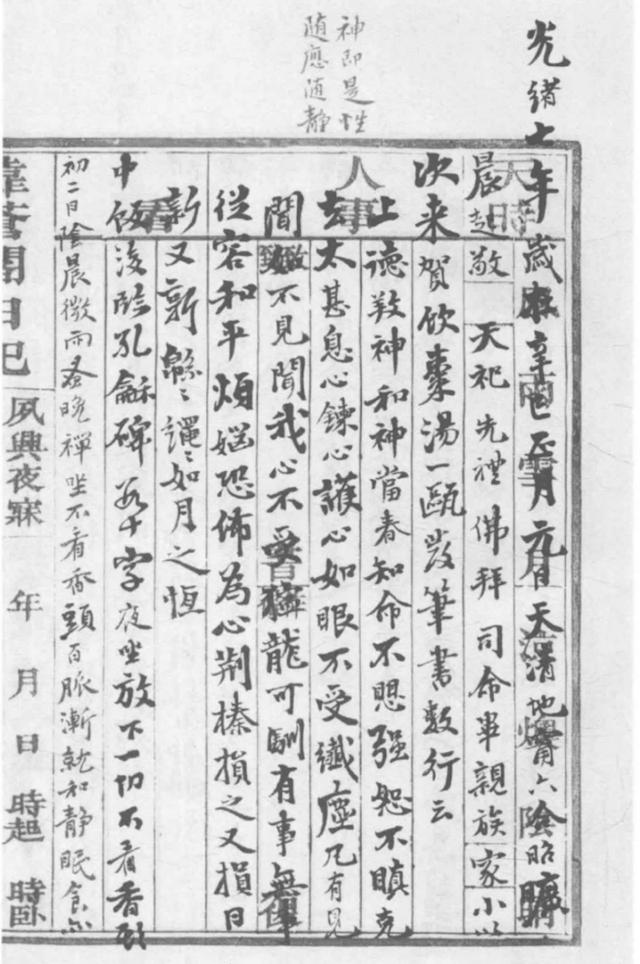 神即是性
随應随静
光緒七年歲在辛巳正月元日天清地甯六陰昭曠
晨起敬天祀先禮佛拜司命畢親族家小以
次来賀飲棗湯一甌發筆書數行云
上德敦神和神當春知命不愳强恕不瞋克
去太甚息心鍊心護心如眼不受纖塵凡有見
聞如不見聞我心不受獰龍可馴有事無事
從容和平煩惱恐怖為心荆榛損之又損日
新又新緜緜繩繩如月之恆
中飯後臨孔龢碑若干字夜坐放下一切不看香頭
初二日陰晨微雨蚤晚禪坐不看香頭百脈漸就和静眠食亦
日記
夙興夜寐 年 月 日 時起 時卧
天時
人事